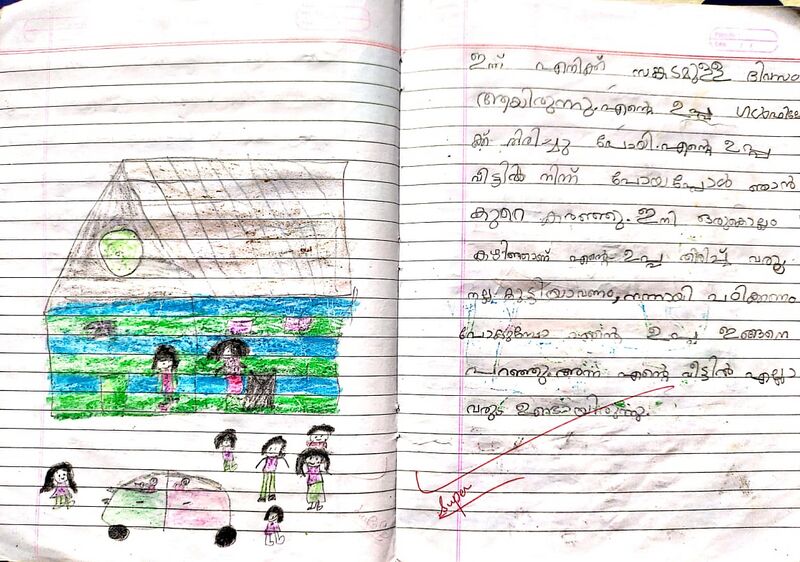 ഇന്ന് എനിക്ക് സങ്കടമുള്ള ദിവസം
ആയിരുന്നു. എന്റെ ഉപ്പ ഗൾഫിലേ
ക്ക് തിരിച്ചു പോയി. എന്റെ ഉപ്പ
വീട്ടിൽ നിന്ന് പോയപ്പോൾ ഞാൻ
കുറെ കരഞ്ഞു. ഇനി ഒരുകൊല്ലം
കഴിഞ്ഞാണ് എന്റെ ഉപ്പ തിരിച്ച് വരൂ.
നല്ല കുട്ടിയാവണം, നന്നായി പഠിക്കണം
പോകുമ്പോ എന്റെ ഉപ്പ ഇങ്ങനെ
പറഞ്ഞു. അന്ന് എന്റെ വീട്ടിൽ എല്ലാ
വരും ഉണ്ടായിരുന്നു.
Super